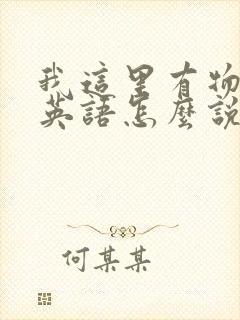 我這里有物
英語怎麼說
何某某